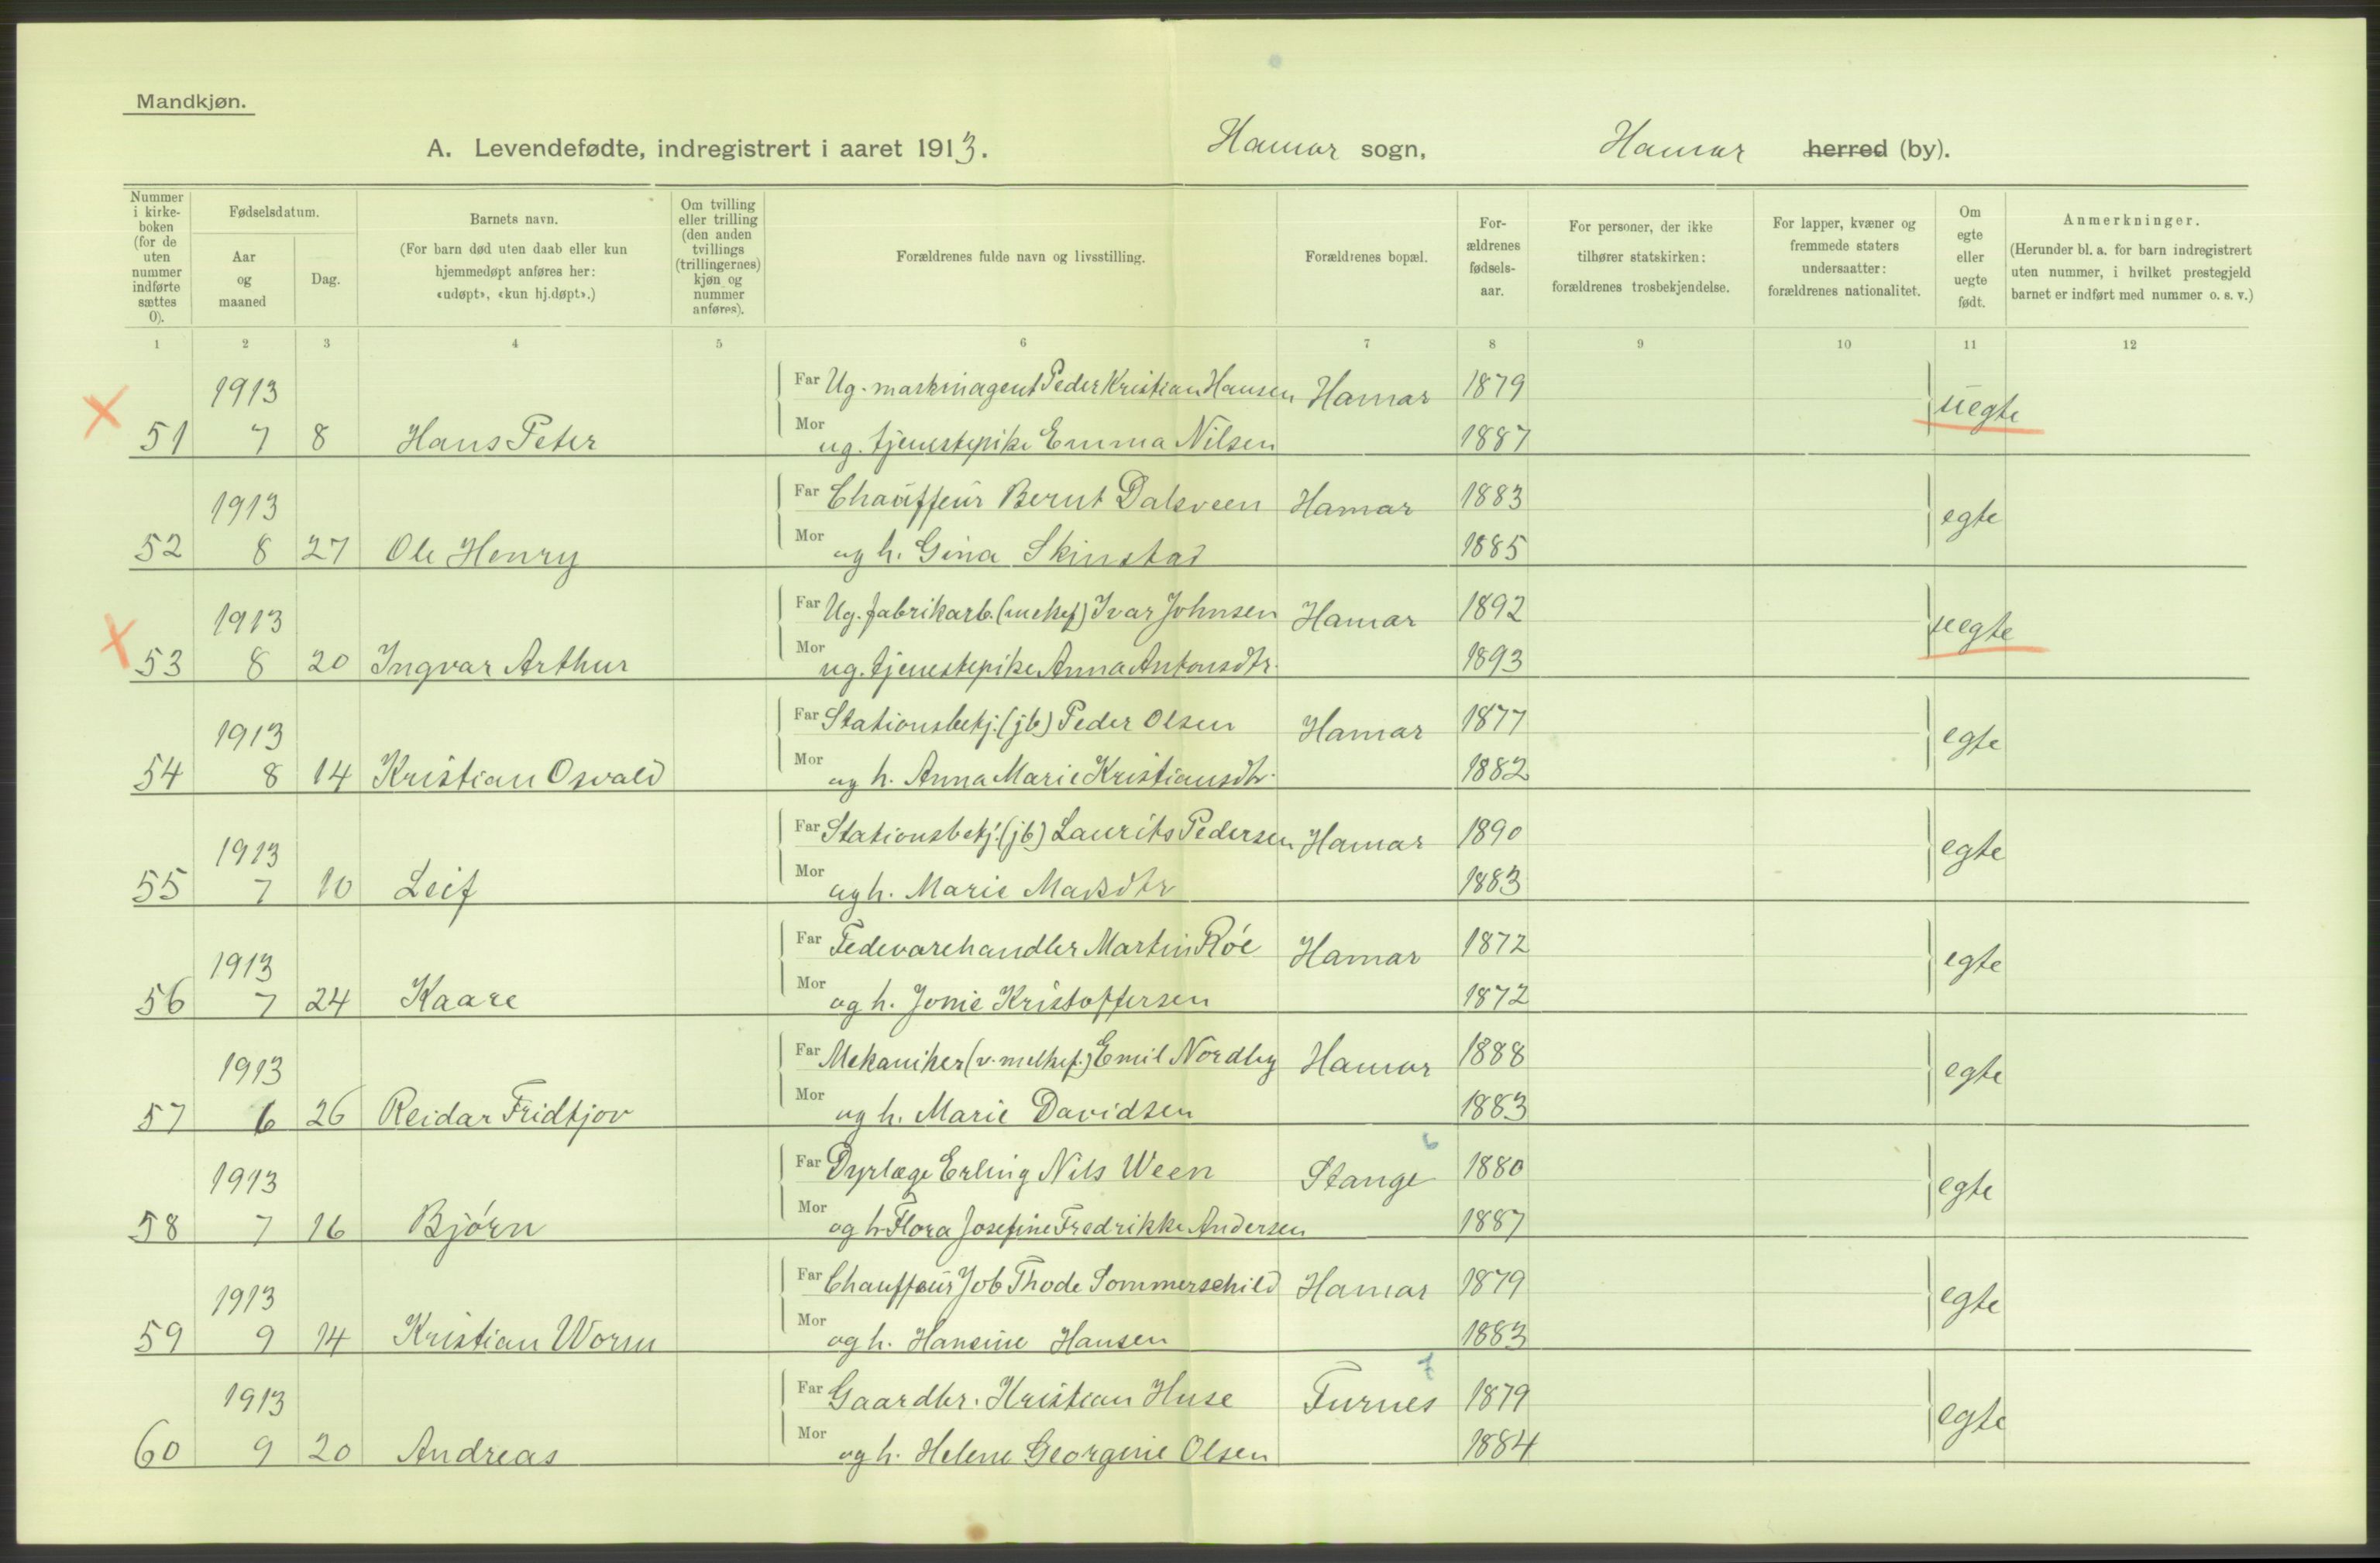 Mandkjøn.
A. Levendefødte, indregistrert i aaret 1913. Hamar sogn, Hamar herred (by).
Nummer i kirkeboken (for de uten nummer indførte sættes 0).
Fødselsdatum.
Aar og maaned
Dag.
Barnets navn.
(For barn død uten daab eller kun hjemmedøpt anføres her: «udøpt», «kun hj.døpt».)
Om tvilling eller trilling (den anden tvillings (trillingernes) kjøn og nummer anføres).
Forældrenes fulde navn og livsstilling.
Forældrenes bopæl.
Forældrenes fødselsaar.
For personer, der ikke tilhører statskirken: forældrenes trosbekjendelse.
For lapper, kvæner og fremmede staters undersaatter: forældrenes nationalitet.
Om egte eller uegte født.
Anmerkninger.
(Herunder bl. a. for barn indregistrert uten nummer, i hvilket prestegjeld barnet er indført med nummer o. s. v.)
1 2 3 4 5 6 7 8 9 10 11 12
1913 Far Ug. maskinagent Peder Kristian Hansen Hamar 1879 uegte
51 7 8 Hans Peter Mor ug. tjenestepike Emma Nilsen 1887
1913 Far Chauffeur Bernt Dalsveen Hamar 1883 egte
52 8 27 Ole Henry Mor og h. Gina Skinstad 1885
1913 Far Ug. fabrikarb. Ivar Johnsen Hamar 1892 uegte
53 8 20 Ingvar Arthur Mor ug. tjenestepike Anna Antonsdtr. 1893
1913 Far Stationsbetj. (jb) Peder Olsen Hamar 1877 egte
54 8 14 Kristian Osvald Mor og h. Anna Marie Kristiansdtr. 1882
1913 Far Stationsbetj. (jb) Laurits Pedersen Hamar 1890 egte
55 7 10 Leif Mor og h. Marie 1883
1913 Far Fedevarehandler Martin Róe Hamar 1872 egte
56 7 24 Kaare Mor og h. Jonie Kristoffersen 1872
1913 Far Mekaniker Emil Nordby Hamar 1888 egte
57 6 26 Reidar Fridtjov Mor og h. Marie Davidsen 1883
6
1913 Far Dyrlæge Erling Nils Ween Stange 1880 egte
58 7 16 Bjórn Mor og h Flora Josefine Fredrikke Andersen 1887
1913 Far Chauffeur Job Thode Sommerschild Hamar 1879 egte
59 9 14 Kristian Worm Mor og h. Hansine Hansen 1883
7
1913 Far Gaardbr. Kristian Huse Furnes 1879 egte
60 9 20 Andreas Mor og h. Helene Georgine Olsen 1884